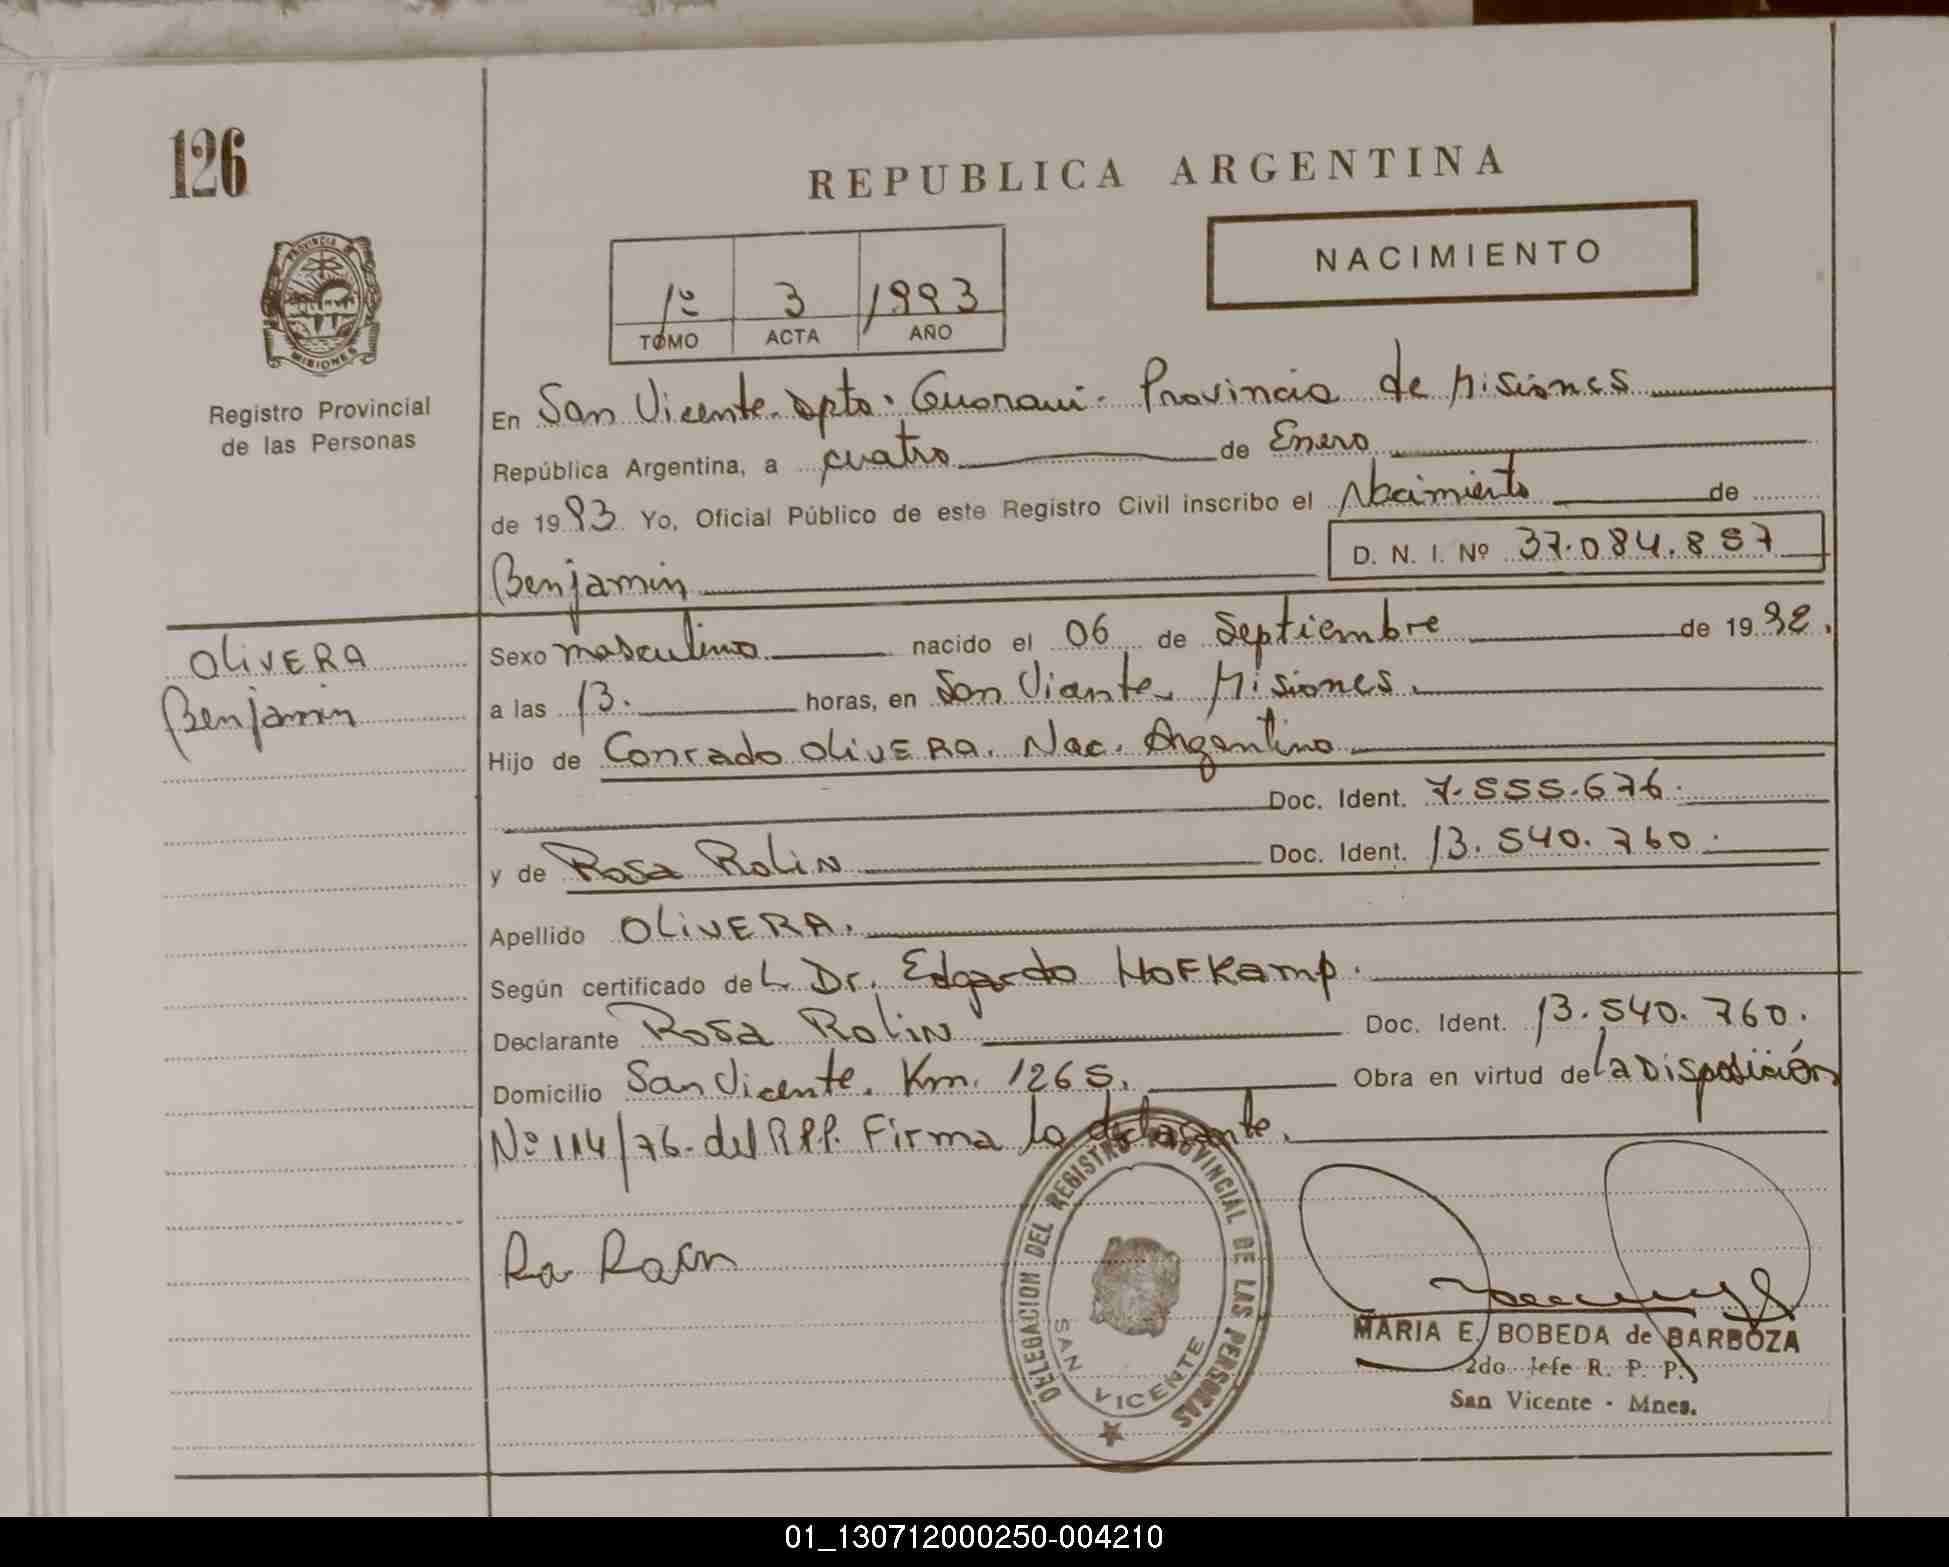 126
REPUBLICA ARGENTINA
NACIMIENTO
1º 3 1993
TOMO ACTA AÑO
PROVINCIA DE
MISIONES
Registro Provincial
de las Personas
En San Vicente. Dpto. Guarani. Provincia de Misiones
República Argentina, a cuatro de Enero
de 1993 Yo, Oficial Público de este Registro Civil inscribo el Nacimiento de
D. N. I. Nº 37.084.857
Benjamin
OLIVERA
Benjamin
Sexo masculino nacido el 06 de Septiembre de 1992.
a las 13. horas, en San Vicente. Misiones.
Hijo de Conrado OLIVERA. Nac. Argentino
Doc. Ident. 7.555.676.
y de Rosa Rolin Doc. Ident. 13.540.760.
Apellido OLIVERA.
Según certificado del Dr. Edgardo HOFKamp.
Declarante Rosa Rolin Doc. Ident. 13.540.760.
Domicilio San Vicente. Km. 1265. Obra en virtud de la Disposición
Nº 114/76. del RPP. Firma la declarante.
DELEGACION DEL REGISTRO PROVINCIAL DE LAS PERSONAS
SAN VICENTE
MARIA E. BOBEDA de BARBOZA
2do Jefe R. P. P.
San Vicente - Mnes.
01_130712000250-004210